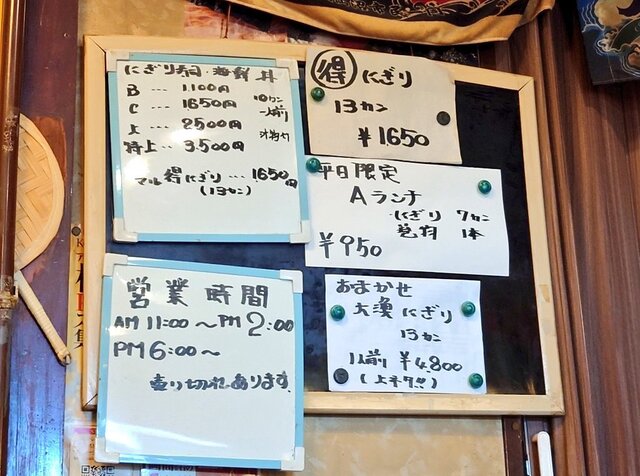 にぎり寿司・海鮮丼
B … 1.100円
C … 1650円
上 … 2500円
特上 … 3.500円
10カン
一人前
マル得にぎり … 1650円
(13カン)
得 にぎり
13カン
¥1650
平日限定
Aランチ
にぎり 7カン
巻物 1本
¥950
おまかせ
大漁にぎり
13カン
1人前 ¥4.800
営業時間
AM 11:00 〜 PM 2:00
PM 6:00 〜
売り切れあります。